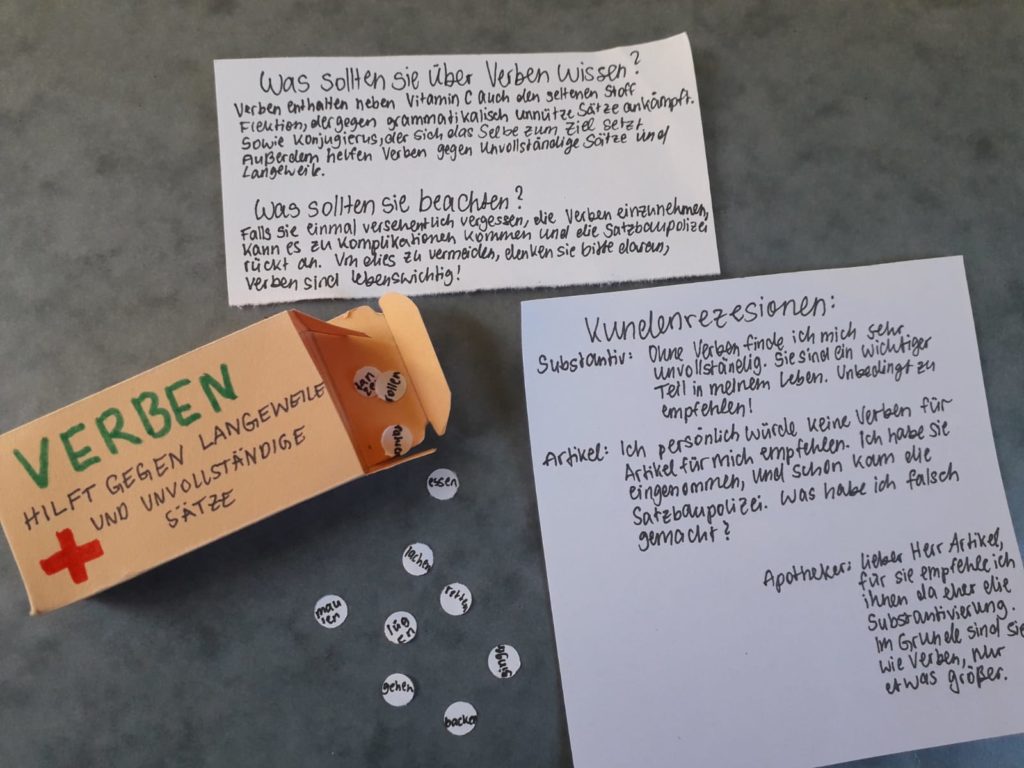 Was sollten sie über Verben wissen?
Verben enthalten neben Vitamin C auch den seltenen Stoff
Flextion, der gegen grammatikalisch unnütze Sätze ankämpft.
Sowie Konjugierus, der sich das Selbe zum Ziel setzt.
Außerdem helfen Verben gegen unvollständige Sätze und
Langeweile.
Was sollten sie beachten?
Falls sie einmal versehentlich vergessen, die Verben einzunehmen,
kann es zu Komplikationen kommen und die Satzbaupolizei
rückt an. Um dies zu vermeiden, denken sie bitte daran,
Verben sind lebenswichtig!
Kundenrezesionen:
Substantiv: Ohne Verben finde ich mich sehr
unvollständig. Sie sind ein wichtiger
Teil in meinem Leben. Unbedingt zu
empfehlen!
Artikel: Ich persönlich würde keine Verben für
Artikel für mich empfehlen. Ich habe sie
eingenommen, und schon kam die
Satzbaupolizei. Was habe ich falsch
gemacht?
Apotheker: lieber Herr Artikel,
für sie empfehle ich
ihnen da eher die
Substantivierung.
Im Grunde sind sie
wie Verben, nur
etwas größer.
VERBEN
HILFT GEGEN LANGEWEILE
UND UNVOLLSTÄNDIGE
SÄTZE
essen
lachen
retten
lüg
en
gehen
backen